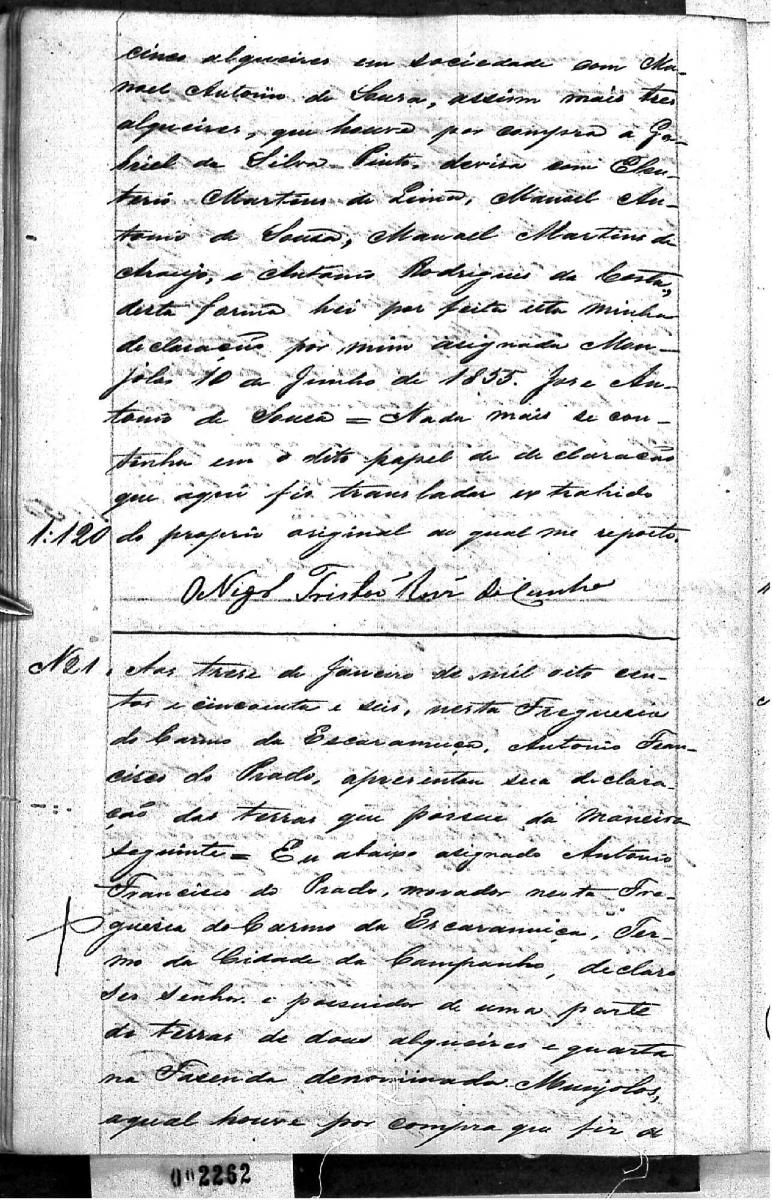 cinco alqueires em sociedade com Ma-
noel Antonio de Souza, assim mais tres
alqueires, que houve por compra a Ga-
briel da Silva Pinto, devisa com Eleu-
terio Martins de Lima, Manoel An-
tonio de Sousa, Manoel Martins de
Araujo, e Antonio Rodrigues da Costa,
desta forma hei por feita esta minha
declaração por mim asignada Mun-
jolos 10 de Junho de 1855. Jose An-
tonio de Souza = Nada mais se con-
tinha em o dito papel de declaração
que aqui fiz transladar extrahido
1:120 do proprio original ao qual me reporto.
O Vigº Tristão da Cunha
N21. Aos trese de Janeiro de mil oito cen-
tos e cincoenta e seis, nesta Freguesia
do Carmo da Escaramuça, Antonio Fran-
cisco do Prado, apresentou sua declara-
ção das terras que possue da maneira
seguinte = Eu abaixo asignado Antonio
Francisco do Prado, morador nesta Fre-
guesia do Carmo da Escaramuça, Ter-
mo da Cidade da Campanha, declaro
ser senhor e possuidor de uma parte
de terras de dous alqueires e quarta
na Fasenda denominada Munjolos,
aqual houve por compra que fiz a
002262